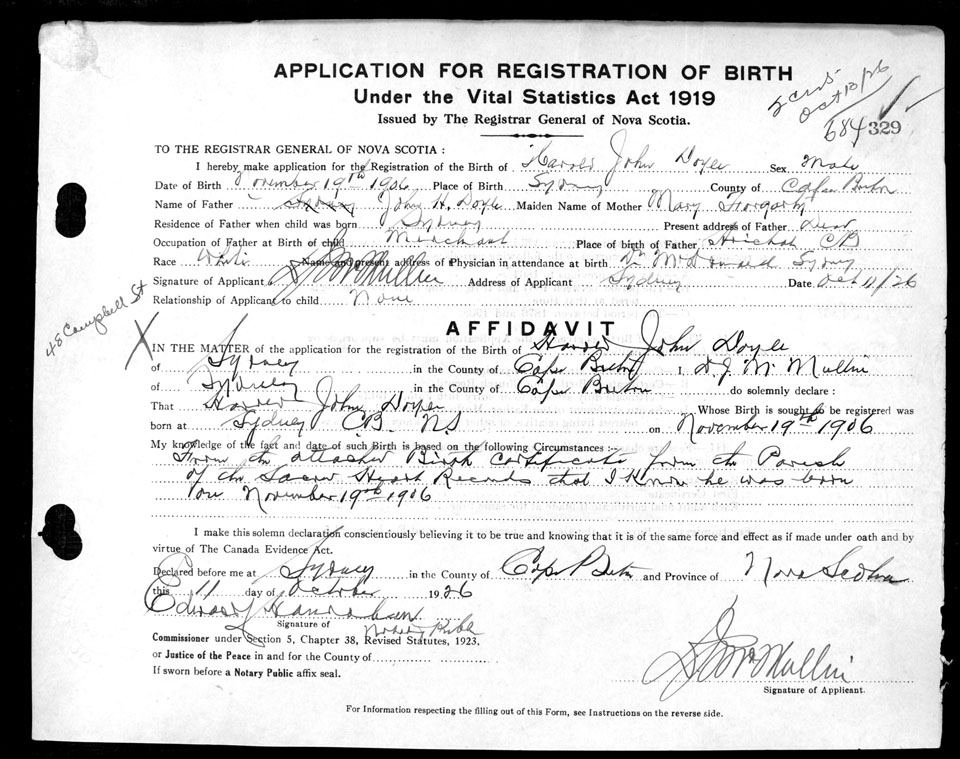 APPLICATION FOR REGISTRATION OF BIRTH
Under the Vital Statistics Act 1919
Issued by The Registrar General of Nova Scotia.
Oct 13/26
684329
TO THE REGISTRAR GENERAL OF NOVA SCOTIA :
I hereby make application for the Registration of the Birth of Harold John Doyle Sex Male
Date of Birth November 19th 1906 Place of Birth Sydney County of Cape Breton
Name of Father Sydney John H. Doyle Maiden Name of Mother Mary Fogarty
Residence of Father when child was born Sydney Present address of Father Dead
Occupation of Father at Birth of child Merchant Place of birth of Father Arichat CB
Race White Name and present address of Physician in attendance at birth Dr McDonald Sydney
Signature of Applicant D J McMullin Address of Applicant Sydney Date Oct 11/26
Relationship of Applicant to child None
48 Campbell St
X
AFFIDAVIT
IN THE MATTER of the application for the registration of the Birth of Harold John Doyle
of Sydney in the County of Cape Breton I, D. J. McMullin
of Sydney in the County of Cape Breton do solemnly declare :
That Harold John Doyle Whose Birth is sought to be registered was
born at Sydney C.B. NS on November 19th 1906
My knowledge of the fact and date of such Birth is based on the following Circumstances :-
From the attached Birth Certificate from the Parish
of the Sacred Heart Records that I know he was born
on November 19th 1906
I make this solemn declaration conscientiously believing it to be true and knowing that it is of the same force and effect as if made under oath and by
virtue of The Canada Evidence Act.
Declared before me at Sydney in the County of Cape Breton and Province of Nova Scotia
this 11 day of October 1926
Edward Hanrahan
Signature of Notary Public
Commissioner under Section 5, Chapter 38, Revised Statutes, 1923,
or Justice of the Peace in and for the County of
If sworn before a Notary Public affix seal.
D J McMullin
Signature of Applicant.
For Information respecting the filling out of this Form, see Instructions on the reverse side.